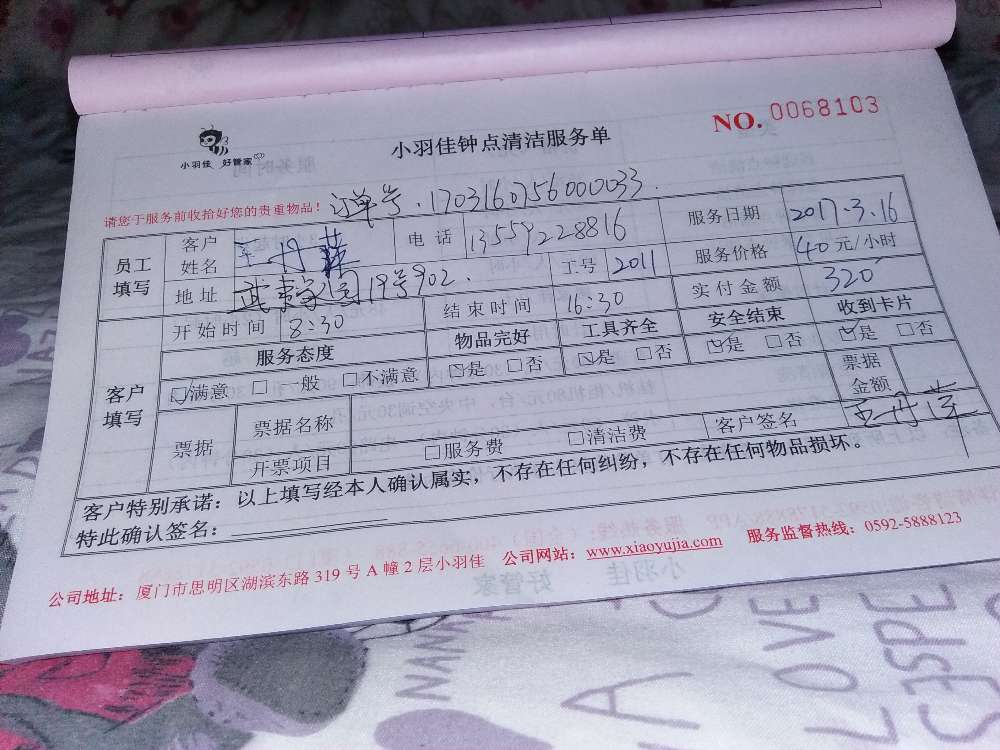 小羽佳 好管家
小羽佳钟点清洁服务单
NO. 0068103
请您于服务前收拾好您的贵重物品！
订单号:1703160756000033.
员工填写
客户姓名 王丹
电话 13559228816
服务日期 2017.3.16
地址 19号902.
工号 2011
服务价格 40元/小时
开始时间 8:30
结束时间 16:30
实付金额 320
客户填写
服务态度 物品完好 工具齐全 安全结束 收到卡片
☑满意 □一般 □不满意 ☑是 □否 ☑是 □否 ☑是 □否 ☑是 □否
票据
票据名称
票据金额
开票项目 □服务费 □清洁费
客户签名 王丹
客户特别承诺：以上填写经本人确认属实，不存在任何纠纷，不存在任何物品损坏。
特此确认签名：
公司地址：厦门市思明区湖滨东路 319 号 A 幢 2 层小羽佳 公司网站：www.xiaoyujia.com 服务监督热线：0592-5888123
NANA
A
LOVE